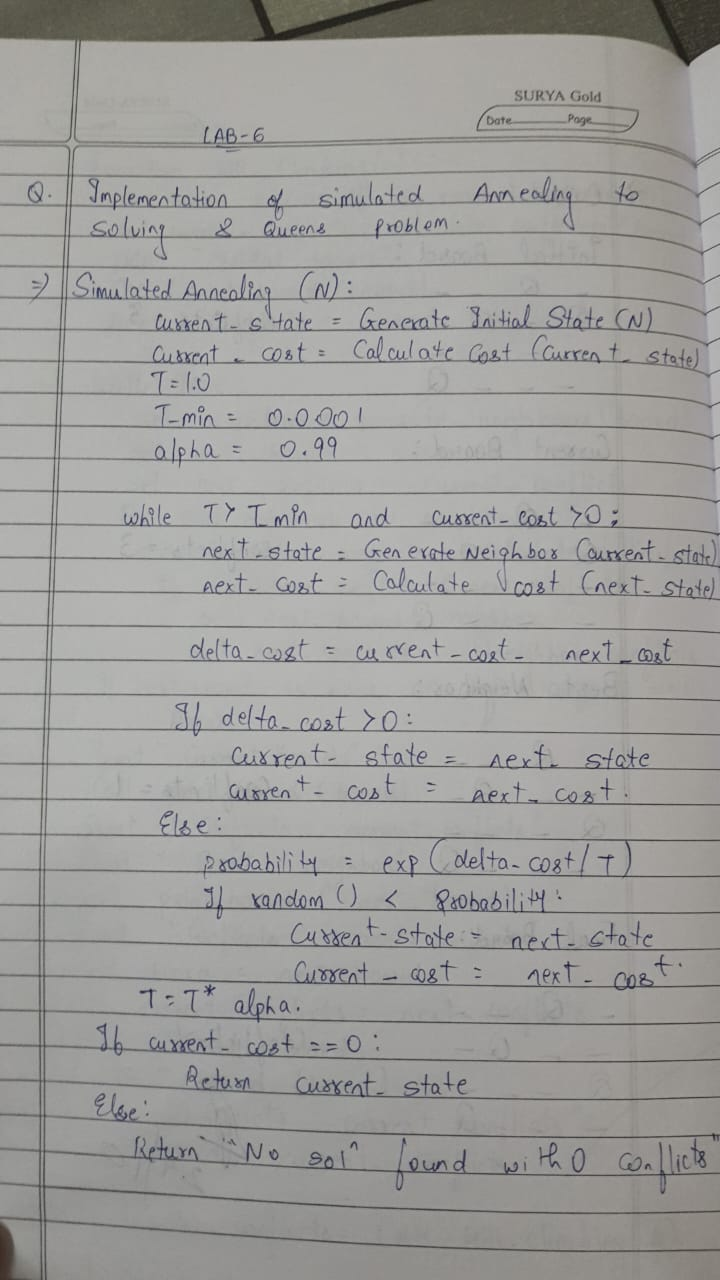 SURYA Gold
Date Page
LAB-6
Q. Implementation of simulated Annealing to
solving 8 Queens problem.
⇒ Simulated Annealing (N):
current-state = Generate Initial State (N)
Current - cost = Calculate Cost (Current-state)
T=1.0
T-min = 0.0001
alpha = 0.99
while T> T min and current-cost >0;
next-state = Generate Neighbor (current-state)
next- cost = Calculate cost (next-state)
delta-cost = current-cost- next-cost
If delta-cost >0:
current- state = next- state
current- cost = next- cost.
Else:
probability = exp (delta-cost/T)
If random () < Probability:
Current-state = next-state
Current - cost = next- cost.
T=T* alpha.
If current- cost ==0:
Return current- state
Else:
Return "No solⁿ found with 0 conflicts"